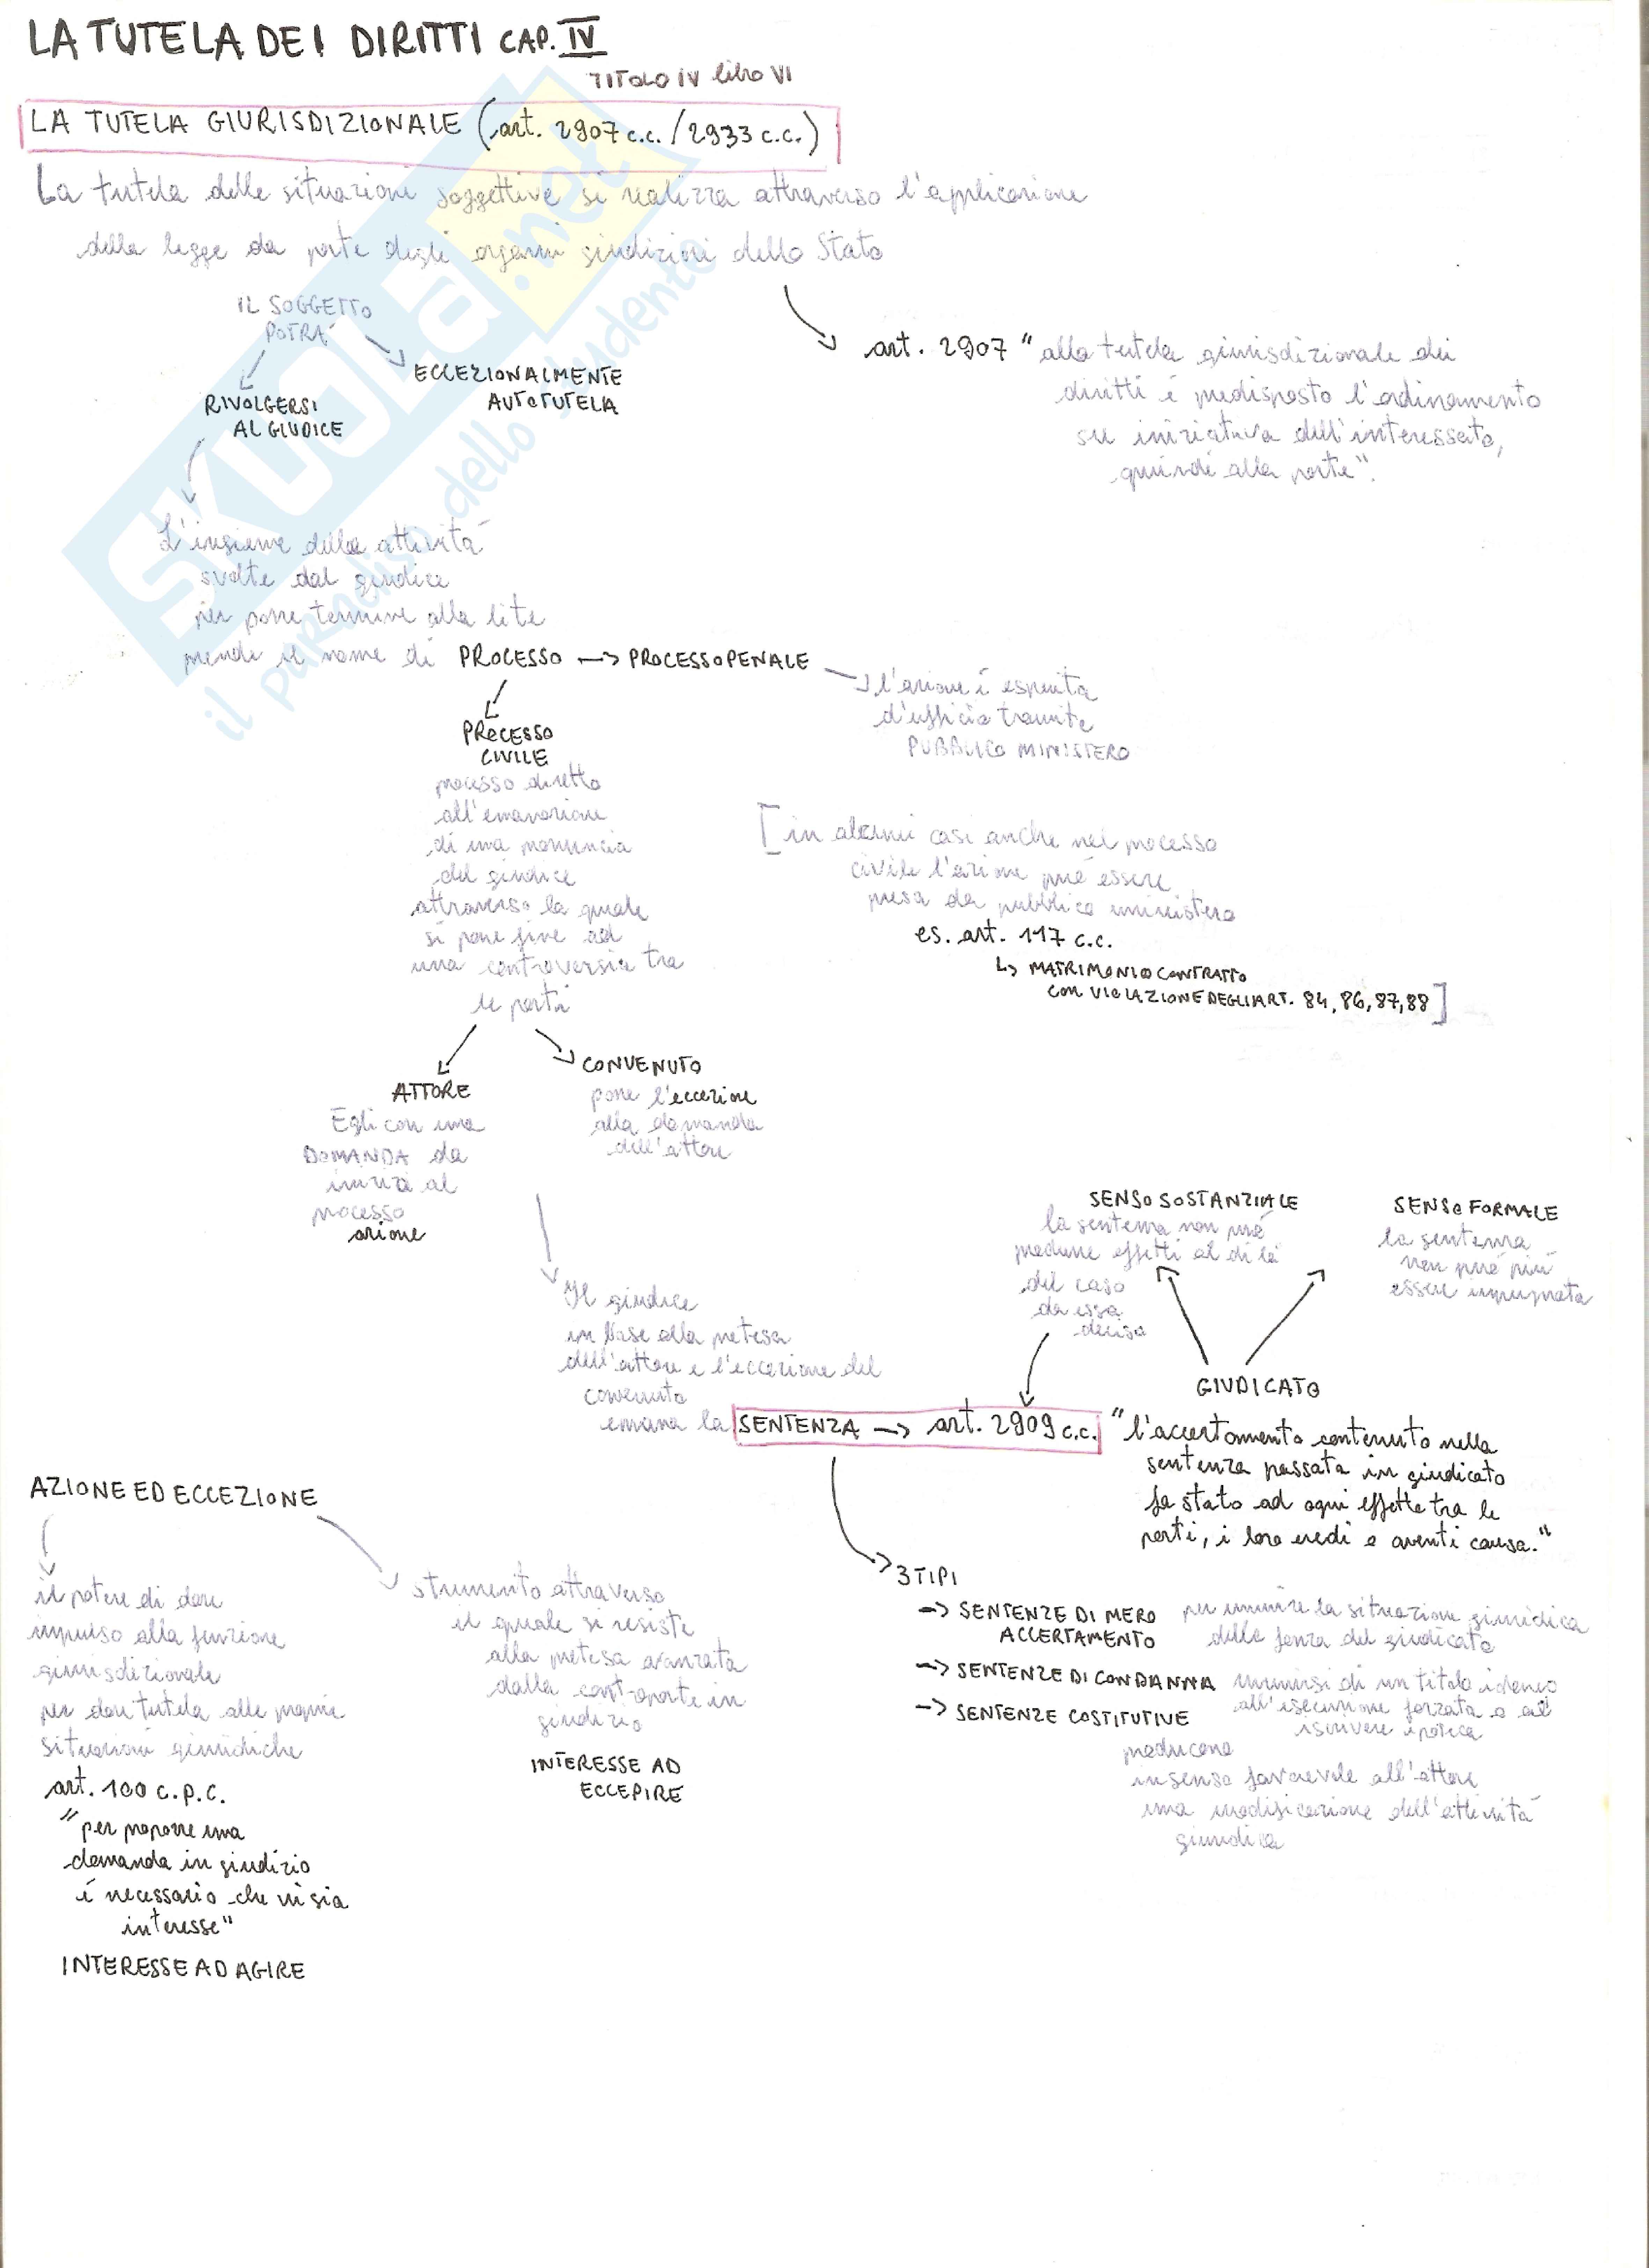 LA TUTELA DEI DIRITTI CAP. IV
TITOLO IV libro VI
LA TUTELA GIURISDIZIONALE (art. 2907 c.c. / 2933 c.c.)
La tutela delle situazioni soggettive si realizza attraverso l'applicazione
della legge da parte degli organi giudizizri dello Stato
IL SOGGETTO
POTRA'
RIVOLGERSI
AL GIUDICE
ECCEZIONALMENTE
AUTOTUTELA
art. 2907 "alla tutela giurisdizionale dei
diritti è predisposto l'ordinamento
su iniziativa dell'interessato,
quindi alla parte".
L'insieme delle attività
svolte dal giudice
per porre termine alla lite
prende il nome di PROCESSO → PROCESSO PENALE
l'azione è esperita
d'ufficio tramite
PUBBLICO MINISTERO
PROCESSO
CIVILE
processo diretto
all'emanazione
di una pronuncia
del giudice
attraverso la quale
si pone fine ad
una controversia tra
le parti
[in alcuni casi anche nel processo
civile l'azione può essere
presa da pubblico ministero
es. art. 117 c.c.
↳ MATRIMONIO CONTRATTO
con VIOLAZIONE DEGLI ART. 84, 86, 87, 88]
ATTORE
Egli con una
DOMANDA da
inizio al
processo
azione
CONVENUTO
pone l'eccezione
alla domanda
dell'attore
Il giudice
in base alla pretesa
dell'attore e l'eccezione del
convenuto
emana la SENTENZA → art. 2909 c.c.
SENSO SOSTANZIALE
la sentenza non può
produrre effetti al di là
del caso
da essa
deciso
SENSO FORMALE
la sentenza
non può più
essere impugnata
GIUDICATO
"l'accertamento contenuto nella
sentenza passata in giudicato
fa stato ad ogni effetto tra le
parti, i loro eredi o aventi causa."
3 TIPI
→ SENTENZE DI MERO
ACCERTAMENTO
per munire la situazione giuridica
della forza del giudicato
→ SENTENZE DI CONDANNA munirsi di un titolo idoneo
all'esecuzione forzata o ad
iscrivere ipoteca
→ SENTENZE COSTITUTIVE
producono
in senso favorevole all'attore
una modificazione dell'attività
giuridica
AZIONE ED ECCEZIONE
il potere di dare
impulso alla funzione
giurisdizionale
per dare tutela alle proprie
situazioni giuridiche
art. 100 c.p.c.
"per proporre una
domanda in giudizio
è necessario che vi sia
interesse"
INTERESSE AD AGIRE
strumento attraverso
il quale si resiste
alla pretesa avanzata
dalla controparte in
giudizio
INTERESSE AD
ECCEPIRE
SKUOLa.net
il paradiso dello studente